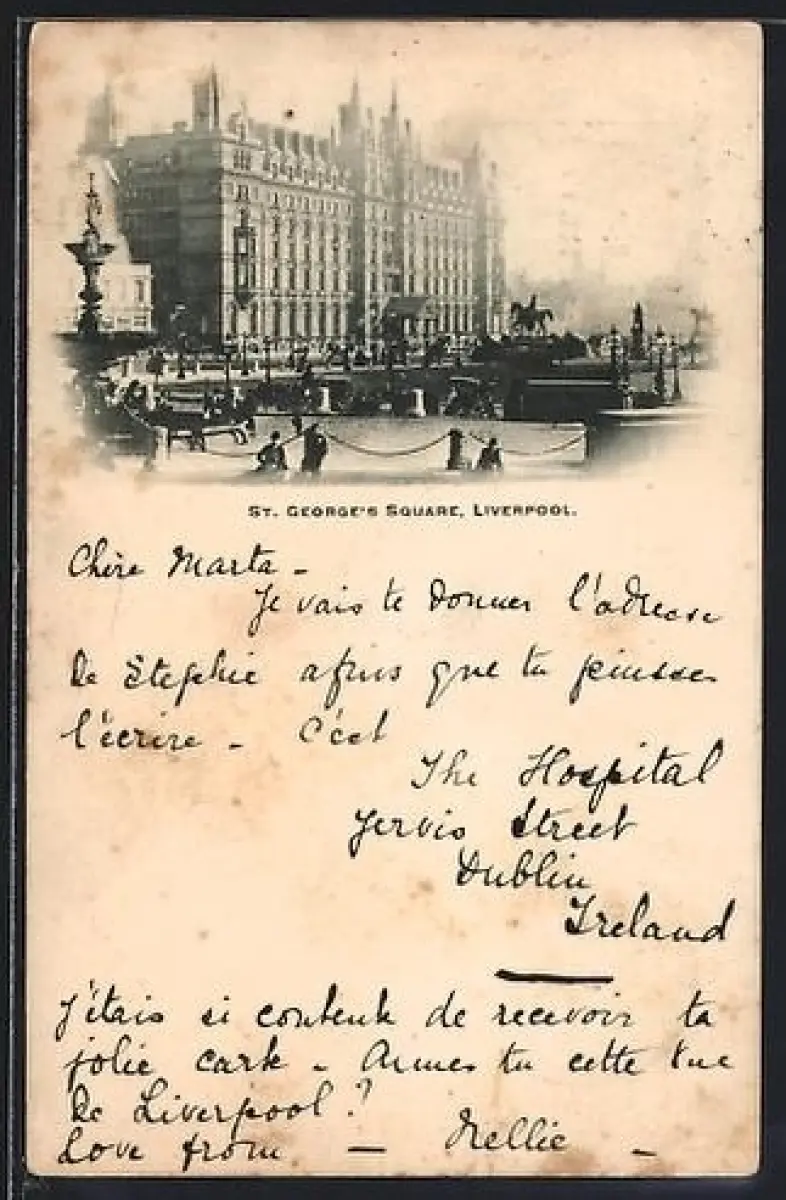 ST. GEORGE'S SQUARE, LIVERPOOL.
Chère Marta -
Je vais te donner l'adresse
de Stephie afins que tu puisses
l'écrire - c'est
The Hospital
Jervis Street
Dublin
Ireland
J'étais si contente de recevoir ta
jolie carte - Aimes tu cette vue
de Liverpool?
Love from — Nellie -